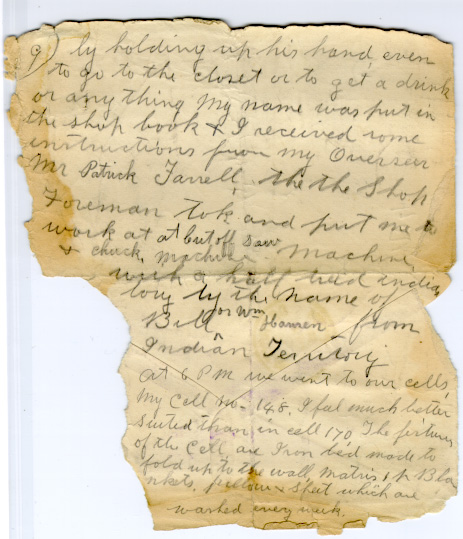 9) by holding up his hand, even
to go to the closet or to get a drink
or any thing My name was put in
the shop book & I received some
instructions from my Overseer
Mr Patrick Farrell, the the Shop
Foreman tok and put me to
work at a cut off saw
& chuck machine. Machine
with a half breed india
boy by the name of
Bill or Wm from
Indian Territory
At 6 P M we went to our cells,
My Cell No- 148. I feel much better
suited than in cell 170. The fixtures
of the Cell are Iron bed made to
fold up to the wall matris, pr Bla
nkets. pillow & Sheet which are
washed every week.